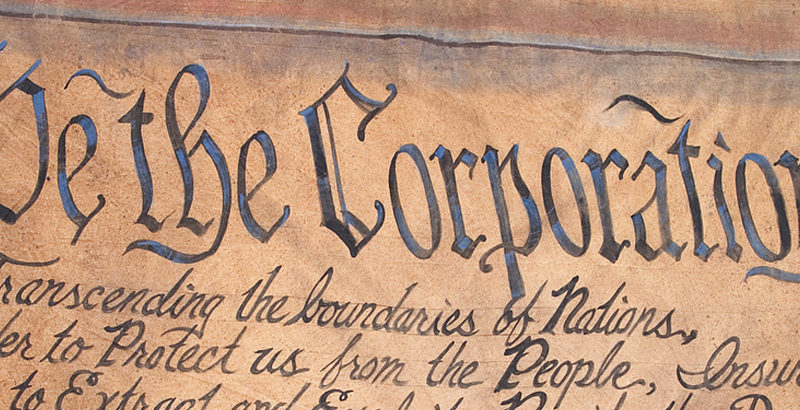 We the Corporation
Transcending the boundaries of Nations,
to Protect us from the People,
to Extract and